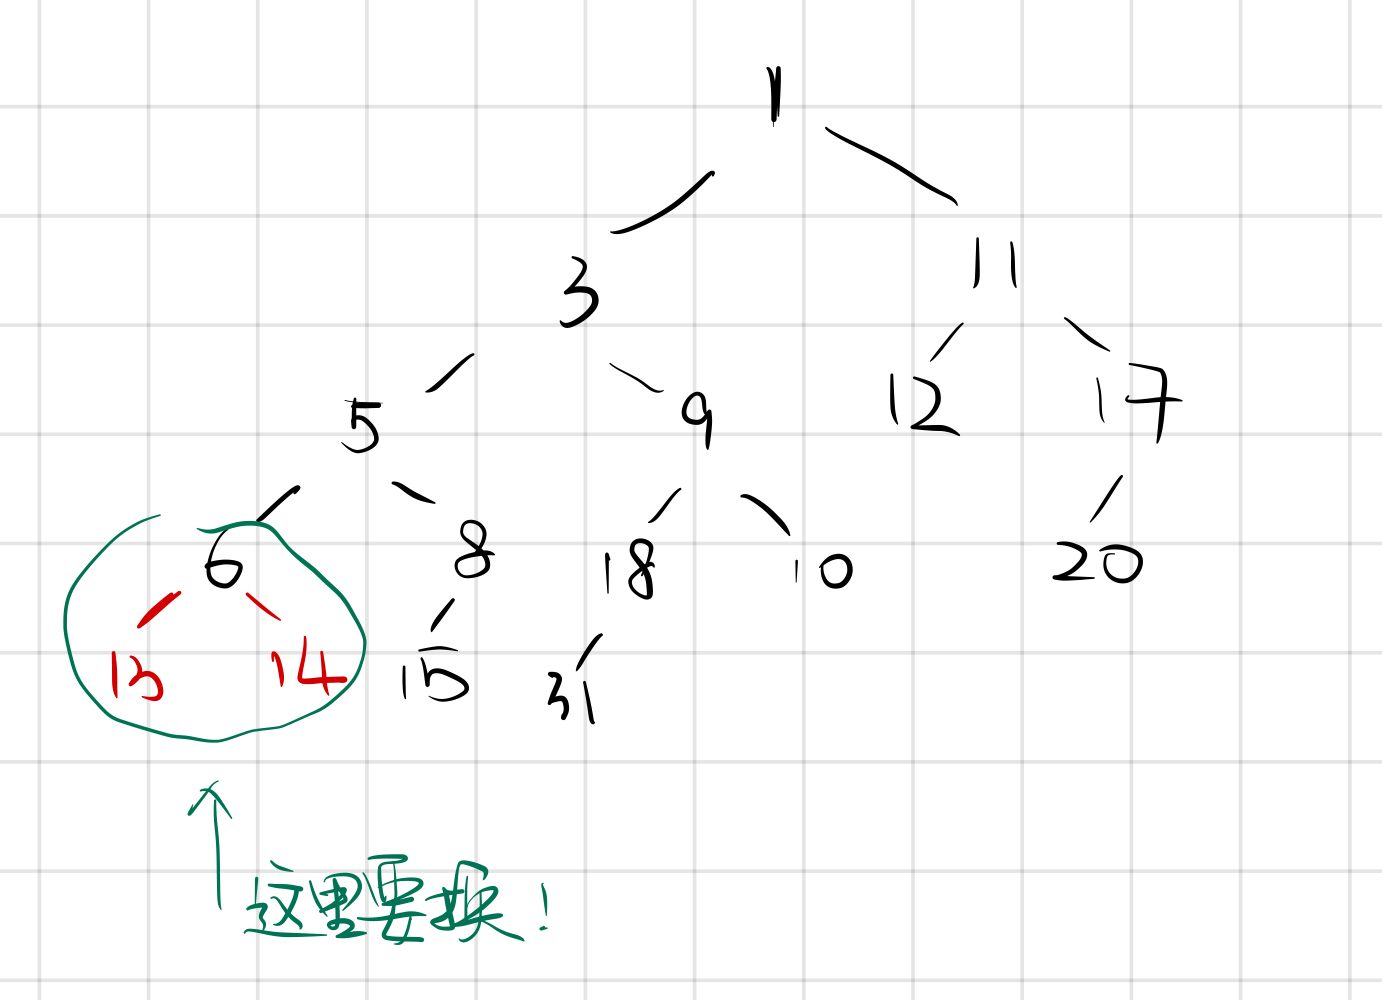 1
3 11
5 9 12 17
6 8 18 10 20
13 14 15 31
这里要换!